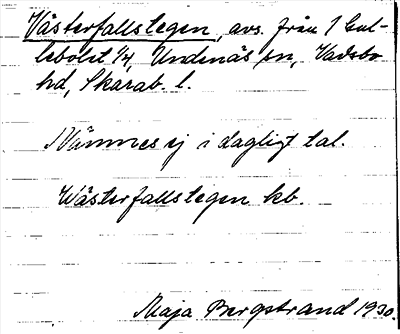 Västerfallstegen, avs. från 1 Gul-
lebolet 1/4, Undenäs sn, Vadsbo
hd, Skarab. l.
Nämnes ej i dagligt tal.
Wästerfallstegen kb.
Maja Bergstrand 1930.